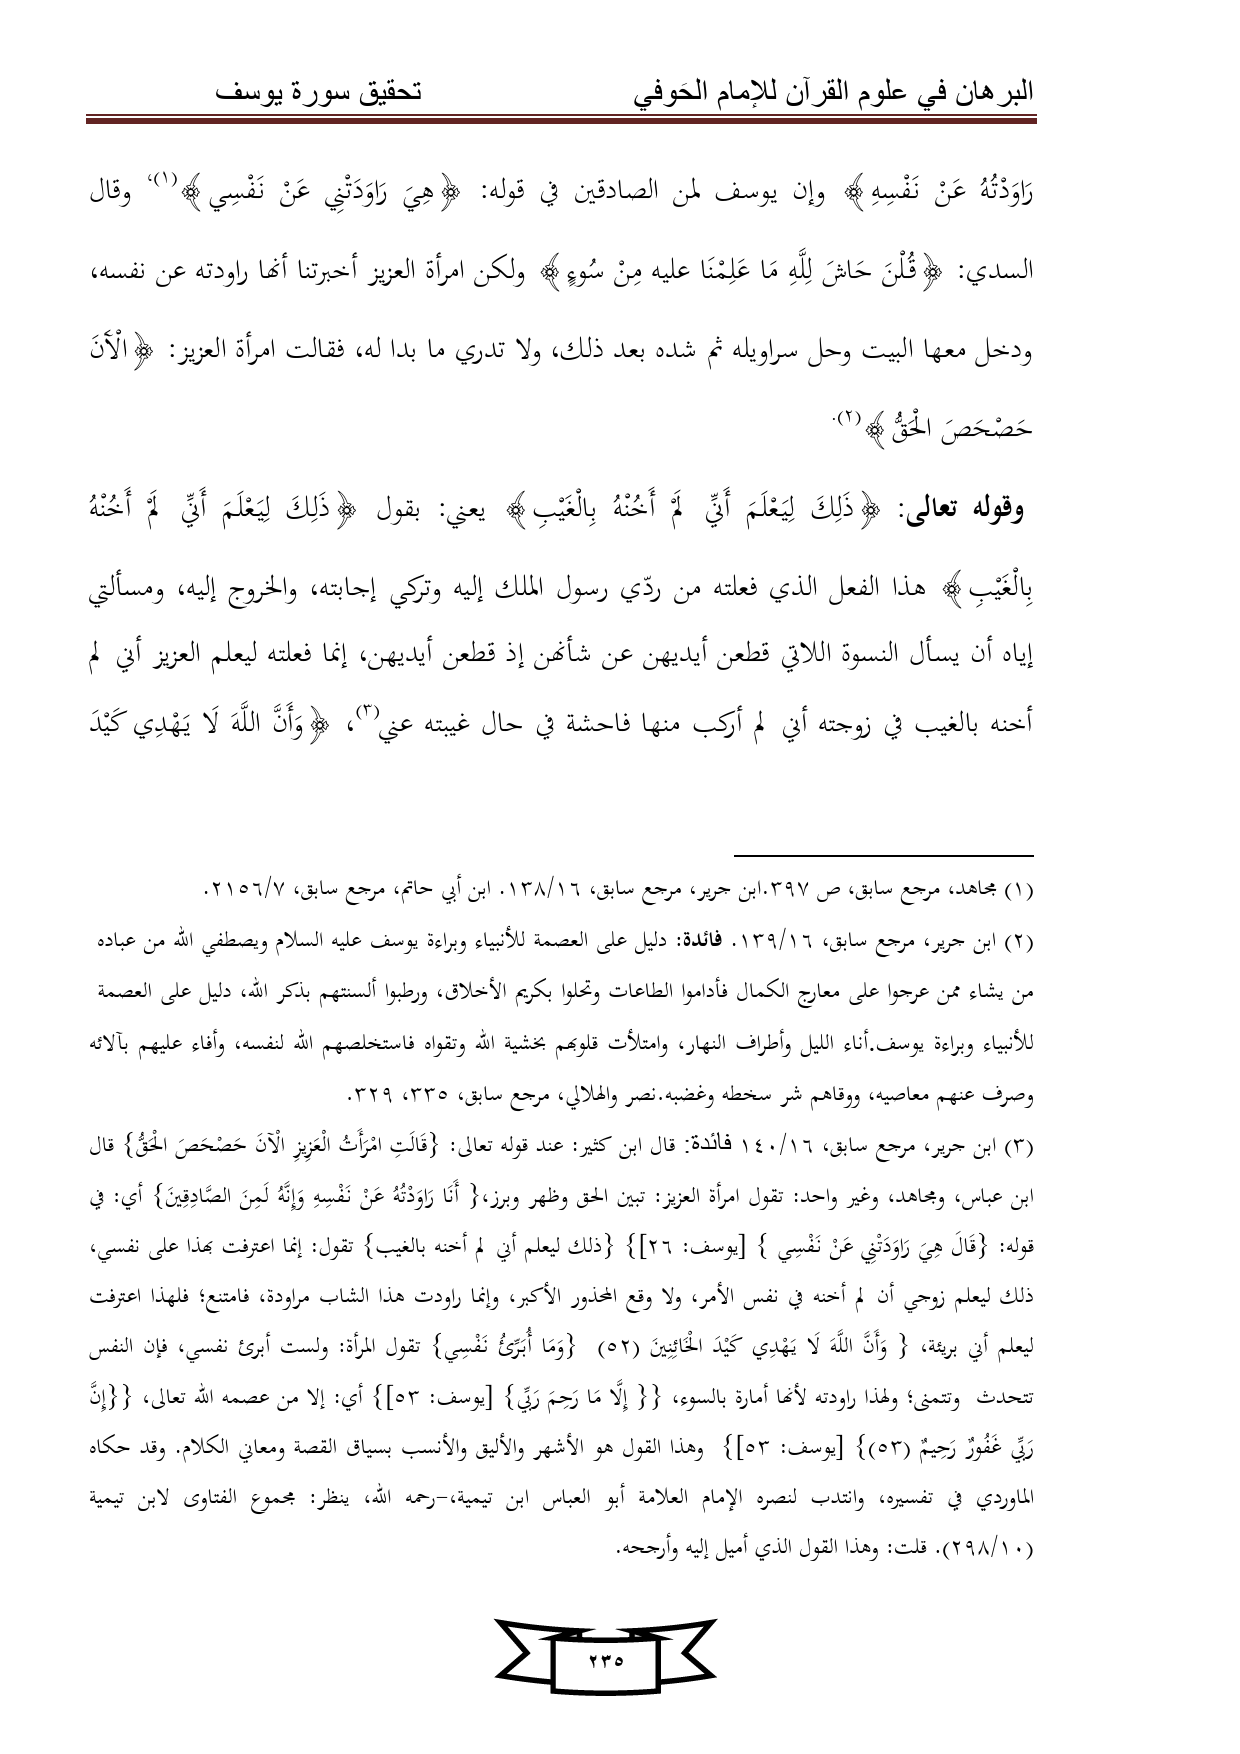 البرهان في علوم القرآن للإمام الحَوفي تحقيق سورة يوسف
رَاوَدْتُهُ عَنْ نَفْسِهِ﴾ وإن يوسف لمن الصادقين في قوله: ﴿هِيَ رَاوَدَتْنِي عَنْ نَفْسِي﴾(١)، وقال
السدي: ﴿قُلْنَ حَاشَ لِلَّهِ مَا عَلِمْنَا عليه مِنْ سُوءٍ﴾ ولكن امرأة العزيز أخبرتنا أنها راودته عن نفسه،
ودخل معها البيت وحل سراويله ثم شده بعد ذلك، ولا تدري ما بدا له، فقالت امرأة العزيز: ﴿الْآنَ
حَصْحَصَ الْحَقُّ﴾(٢).
وقوله تعالى: ﴿ذَلِكَ لِيَعْلَمَ أَنِّي لَمْ أَخُنْهُ بِالْغَيْبِ﴾ يعني: بقول ﴿ذَلِكَ لِيَعْلَمَ أَنِّي لَمْ أَخُنْهُ
بِالْغَيْبِ﴾ هذا الفعل الذي فعلته من ردّي رسول الملك إليه وتركي إجابته، والخروج إليه، ومسألتي
إياه أن يسأل النسوة اللاتي قطعن أيديهن عن شأنهن إذ قطعن أيديهن، إنما فعلته ليعلم العزيز أني لم
أخنه بالغيب في زوجته أني لم أركب منها فاحشة في حال غيبته عني(٣)، ﴿وَأَنَّ اللَّهَ لَا يَهْدِي كَيْدَ
(١) مجاهد، مرجع سابق، ص ٣٩٧.ابن جرير، مرجع سابق، ١٣٨/١٦. ابن أبي حاتم، مرجع سابق، ٢١٥٦/٧.
(٢) ابن جرير، مرجع سابق، ١٣٩/١٦. فائدة: دليل على العصمة للأنبياء وبراءة يوسف عليه السلام ويصطفي الله من عباده
من يشاء ممن عرجوا على معارج الكمال فأداموا الطاعات وتحلوا بكريم الأخلاق، ورطبوا ألسنتهم بذكر الله، دليل على العصمة
للأنبياء وبراءة يوسف.أناء الليل وأطراف النهار، وامتلأت قلوبهم بخشية الله وتقواه فاستخلصهم الله لنفسه، وأفاء عليهم بآلائه
وصرف عنهم معاصيه، ووقاهم شر سخطه وغضبه.نصر والهلالي، مرجع سابق، ٣٣٥، ٣٢٩.
(٣) ابن جرير، مرجع سابق، ١٤٠/١٦ فائدة: قال ابن كثير: عند قوله تعالى: {قَالَتِ امْرَأَتُ الْعَزِيزِ الْآنَ حَصْحَصَ الْحَقُّ} قال
ابن عباس، ومجاهد، وغير واحد: تقول امرأة العزيز: تبين الحق وظهر وبرز،{ أَنَا رَاوَدْتُهُ عَنْ نَفْسِهِ وَإِنَّهُ لَمِنَ الصَّادِقِينَ} أي: في
قوله: {قَالَ هِيَ رَاوَدَتْنِي عَنْ نَفْسِي } [يوسف: ٢٦]} {ذلك ليعلم أني لم أخنه بالغيب} تقول: إنما اعترفت بهذا على نفسي،
ذلك ليعلم زوجي أن لم أخنه في نفس الأمر، ولا وقع المحذور الأكبر، وإنما راودت هذا الشاب مراودة، فامتنع؛ فلهذا اعترفت
ليعلم أني بريئة، { وَأَنَّ اللَّهَ لَا يَهْدِي كَيْدَ الْخَائِنِينَ (٥٢) {وَمَا أُبَرِّئُ نَفْسِي} تقول المرأة: ولست أبرئ نفسي، فإن النفس
تتحدث وتتمنى؛ ولهذا راودته لأنها أمارة بالسوء، {{ إِلَّا مَا رَحِمَ رَبِّي} [يوسف: ٥٣]} أي: إلا من عصمه الله تعالى، {{إِنَّ
رَبِّي غَفُورٌ رَحِيمٌ (٥٣)} [يوسف: ٥٣]} وهذا القول هو الأشهر والأليق والأنسب بسياق القصة ومعاني الكلام. وقد حكاه
الماوردي في تفسيره، وانتدب لنصره الإمام العلامة أبو العباس ابن تيمية،-رحمه الله، ينظر: مجموع الفتاوى لابن تيمية
(٢٩٨/١٠). قلت: وهذا القول الذي أميل إليه وأرجحه.
٢٣٥